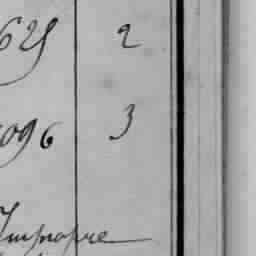 625 2
096 3
Impropre